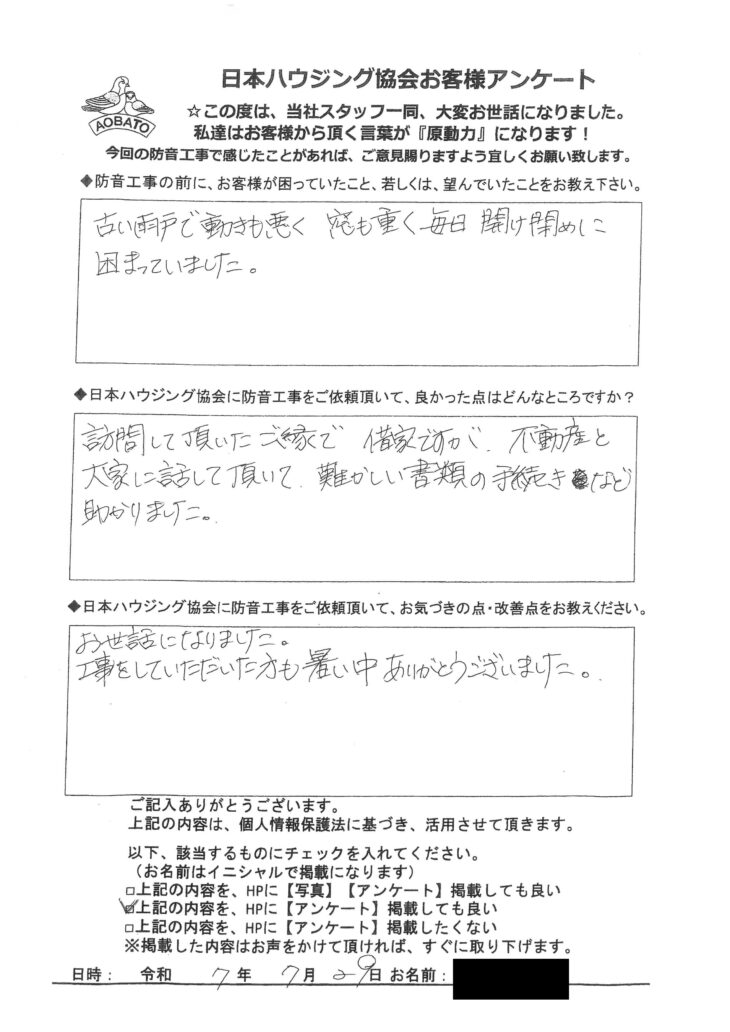 日本ハウジング協会お客様アンケート
AOBATO
☆この度は、当社スタッフ一同、大変お世話になりました。
私達はお客様から頂く言葉が『原動力』になります！
今回の防音工事で感じたことがあれば、ご意見賜りますよう宜しくお願い致します。
◆防音工事の前に、お客様が困っていたこと、若しくは、望んでいたことをお教え下さい。
古い雨戸で動きも悪く 窓も重く毎日 開け閉めに
困まっていました。
◆日本ハウジング協会に防音工事をご依頼頂いて、良かった点はどんなところですか？
訪問して頂いたご縁で 借家ですが、不動産と
大家に話して頂いて、難かしい書類の手続きなど
助かりました。
◆日本ハウジング協会に防音工事をご依頼頂いて、お気づきの点・改善点をお教えください。
お世話になりました。
工事をしていただいた方も暑い中ありがとうございました。
ご記入ありがとうございます。
上記の内容は、個人情報保護法に基づき、活用させて頂きます。
以下、該当するものにチェックを入れてください。
（お名前はイニシャルで掲載になります）
□上記の内容を、HPに【写真】【アンケート】掲載しても良い
☑上記の内容を、HPに【アンケート】掲載しても良い
□上記の内容を、HPに【アンケート】掲載したくない
※掲載した内容はお声をかけて頂ければ、すぐに取り下げます。
日時： 令和 7年 7月 29日 お名前：